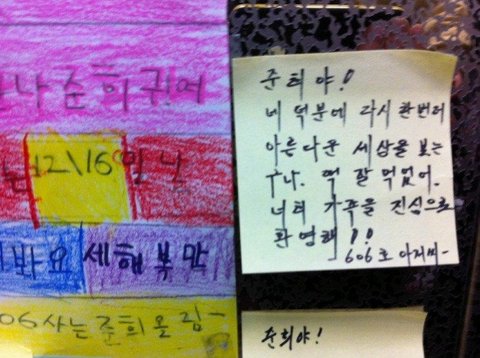 나 준희 귀여
는 12\16일 날
봐요 세해 복 만
06 사는 준희 올림-
준희야!
네 덕분에 다시 한번 더
아른다운 세상을 보는
구나. 떡 잘 먹었어.
너희 가족을 진심으로
환영해!!
606호 아저씨-
준희야!